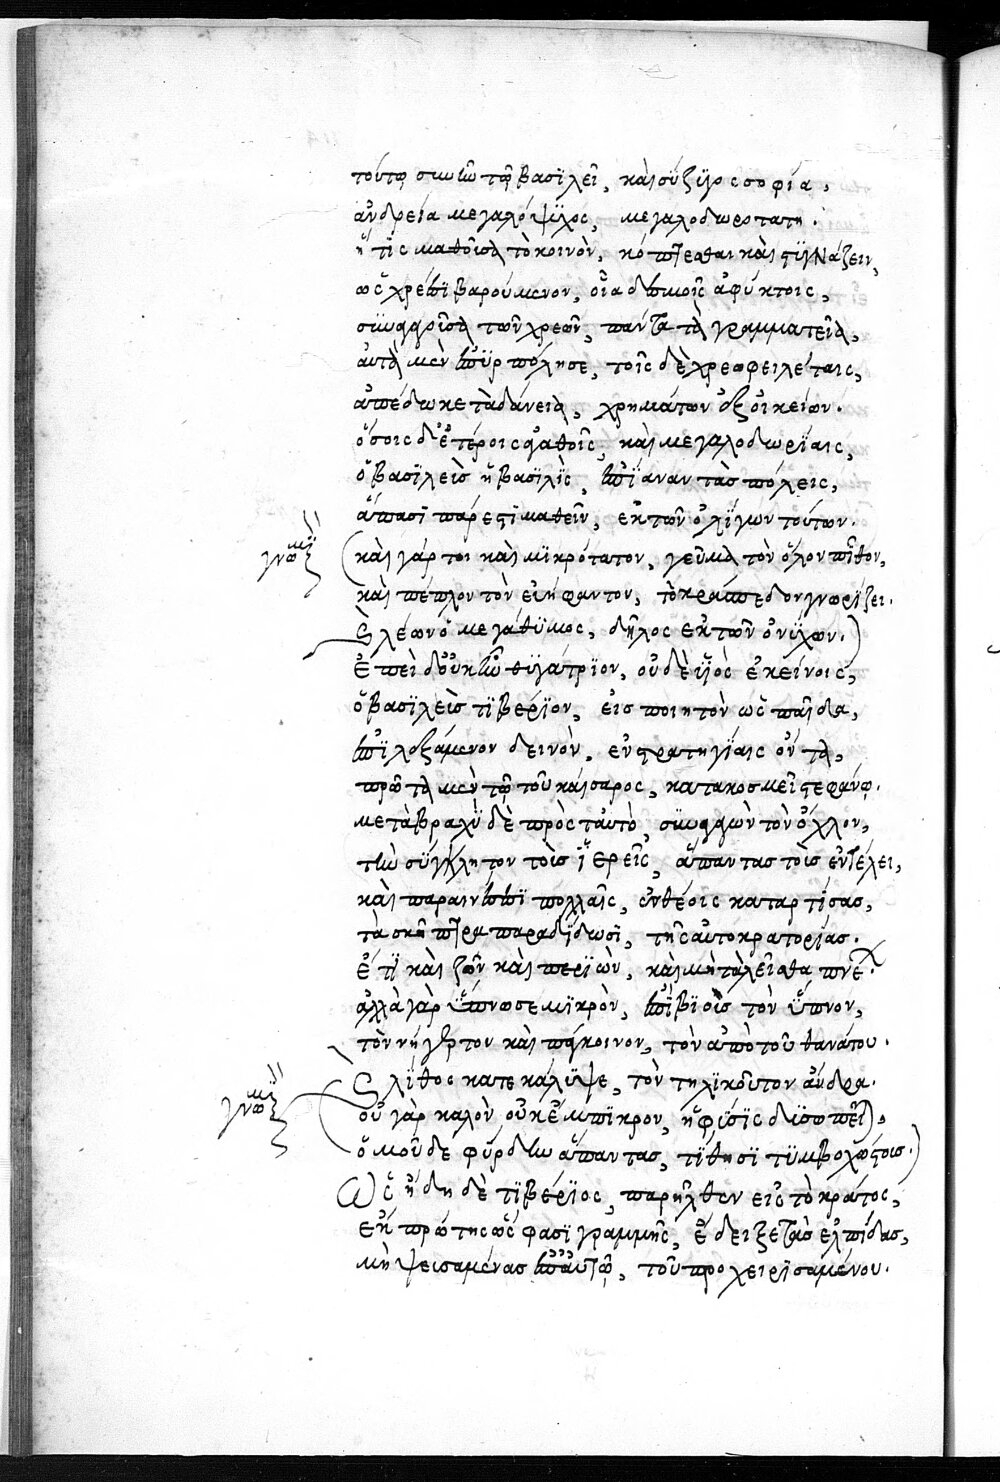 τούτῳ συνῆν τῷ βασϊλεῖ, καὶ σύζϋγος σοφία,
ἀνδρεία μεγαλόψϋχος, μεγαλοδωροτάτη.
ἥτις μαθοῦσα τὸ κοινὸν, κόπτεσθαι καὶ στϋγνάζειν,
ὡς χρέεσϊ βαρούμενον, οἷα δεσμοῖς ἀφύκτοις,
σϋναθροῖσα τῶν χρεῶν, πάντα τὰ γραμματεῖα,
αὐτὰ μὲν ἐπϋρπόλησε, τοῖς δὲ χρεωφειλέταις,
ἀπέδωκε τὰ δάνεια, χρημάτων ἐξ οἰκείων.
ὅσοις δ' ἑτέροις ἀγαθοῖς, καὶ μεγαλοδωρίαις,
ὁ βασϊλεὺς ἡ βασϊλὶς, ἐπίαναν τὰς πόλεις,
ἅπασϊ πάρεστι μαθεῖν, ἐκ τῶν ὀλίγων τούτων.
γνωμϊ
καὶ γάρ τοι καὶ μϊκρότατον, γεῦμα τὸν ὅλον πίθον,
καὶ πέπλον τὸν εὐήφαντον, τὸ κράσπεδον γνωρίζει.
λέων ὁ μεγάθϋμος, δῆλος ἐκ τῶν ὀνύχων.
Ἐπεὶ δ' οὐκ ἦν θϋγάτριον, οὐδὲ ϋἱὸς ἐκείνοις,
ὁ βασϊλεὺς τϊβέριον, εἰσποιητὸν ὡς παῖδα,
ἐπϊλεξάμενον δεινὸν, ἐν στρατηγίαις ὄντα,
πρῶτα μὲν τῷ τοῦ καίσαρος, κατακοσμεῖ στεφάνῳ.
μετὰ βραχὺ δὲ πρὸς ταὐτὸ, σϋναθρῶν τὸν ὄχλον,
τὴν σύγκλητον τοὺς ἱερεῖς, ἅπαντας τοὺς ἐν τέλει,
καὶ παραινέσεσϊ πολλαῖς, ἐνθέοις καταρτίσας,
τὰ σκῆπτρα παραδίδωσϊ, τῆς αὐτοκρατορίας.
ἔτϊ καὶ ζῶν καὶ περϊὼν, καὶ μὴ τὰ λεῖσθα πνέχ.
ἀλλὰ γὰρ ὕπνωσε μϊκρὸν, ἐπϊβϊοὺς τὸν ὕπνον,
τὸν νήγρτον καὶ πάγκοινον, τὸν ἀπὸ τοῦ θανάτου.
λίθος κατεκάλϋψε, τὸν τηλϊκοῦτον ἄνδρα.
γνωμϊ
οὐ γὰρ καλὸν οὐκ ἔμπϊκρον, ἡ φύσϊς δϋσωπεῖ,
ὁμοῦ δὲ φύρδην ἅπαντας, τίθησϊ τϋμβοχώστοις.
Ὡς ἤδη δὲ τϊβέριος, παρῆλθεν εἰς τὸ κράτος,
ἐκ πρώτης ὡς φασὶ γραμμῆς, ἔδειξε τὰς ἐλπίδας,
μὴ ψευσαμένας ἐπ' αὐτῷ, τοῦ προχειρϊσαμένου.